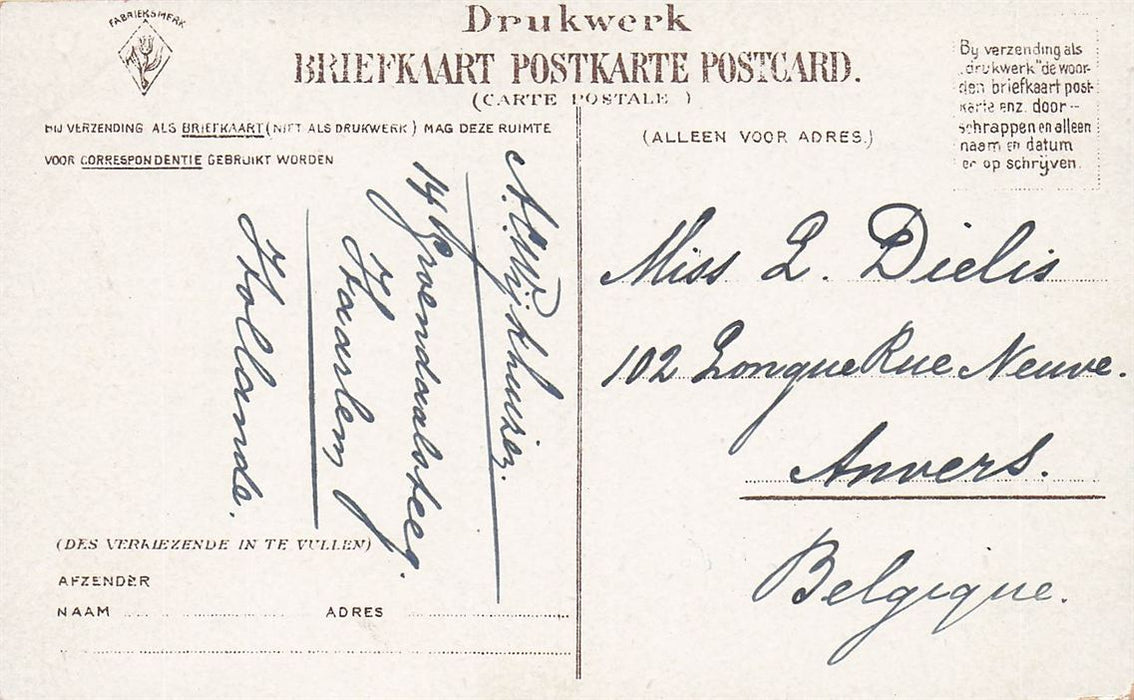 FABRIEKSMERK
Drukwerk
BRIEFKAART POSTKARTE POSTCARD.
(CARTE POSTALE)
BIJ VERZENDING ALS BRIEFKAART (NIET ALS DRUKWERK) MAG DEZE RUIMTE
VOOR CORRESPONDENTIE GEBRUIKT WORDEN
(ALLEEN VOOR ADRES.)
By verzending als
„drukwerk" de woor-
den briefkaart post-
karte enz. door-
schrappen en alleen
naam en datum
er op schrijven.
14 Groendaalsteeg.
Haarlem
Hollande.
Miss L. Dielis
102 Longue Rue Neuve.
Anvers.
Belgique.
(DES VERKIEZENDE IN TE VULLEN)
AFZENDER
NAAM ADRES